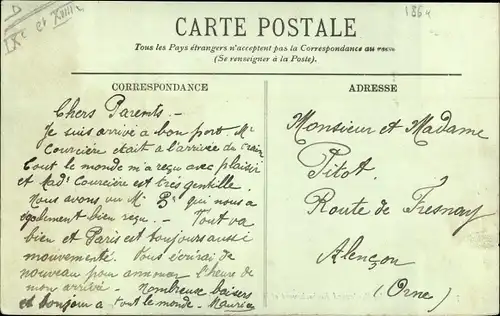 D
IXe et XVIIIe
1864
CARTE POSTALE
Tous les Pays étrangers n'acceptent pas la Correspondance au recto
(Se renseigner à la Poste).
CORRESPONDANCE
ADRESSE
Chers Parents. -
Je suis arrivé a bon port. Mr
Courcière était a l'arrivée du train
Tout le monde m'a reçu avec plaisir
et Made Courcière est très gentille.
Nous avons vu M. qui nous a
également bien reçu. - Tout va
bien et Paris est toujours aussi
mouvementé. Vous écrirai de
nouveau pour annoncer l'heure de
mon arrivée. - Nombreux baisers
et bonjour a tout le monde - Maurice
Monsieur et Madame
Pitot
Route de Fresnay
Alençon
(Orne)